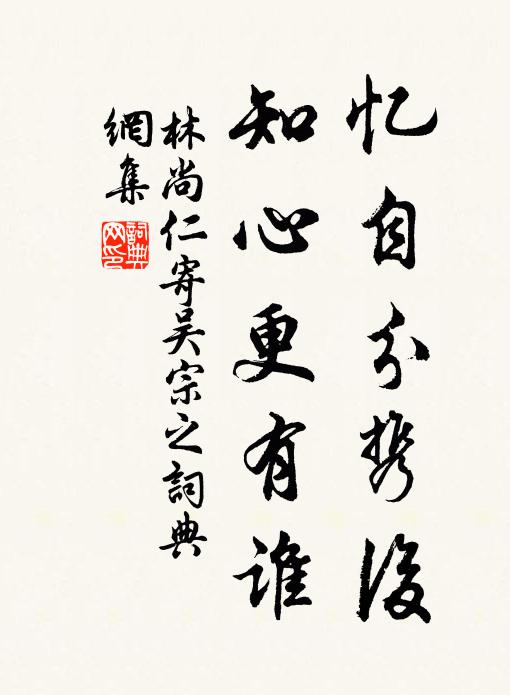 忆自分携後
知心更有谁
林尚仁寄吴宗之詞典
網集
詞典网印